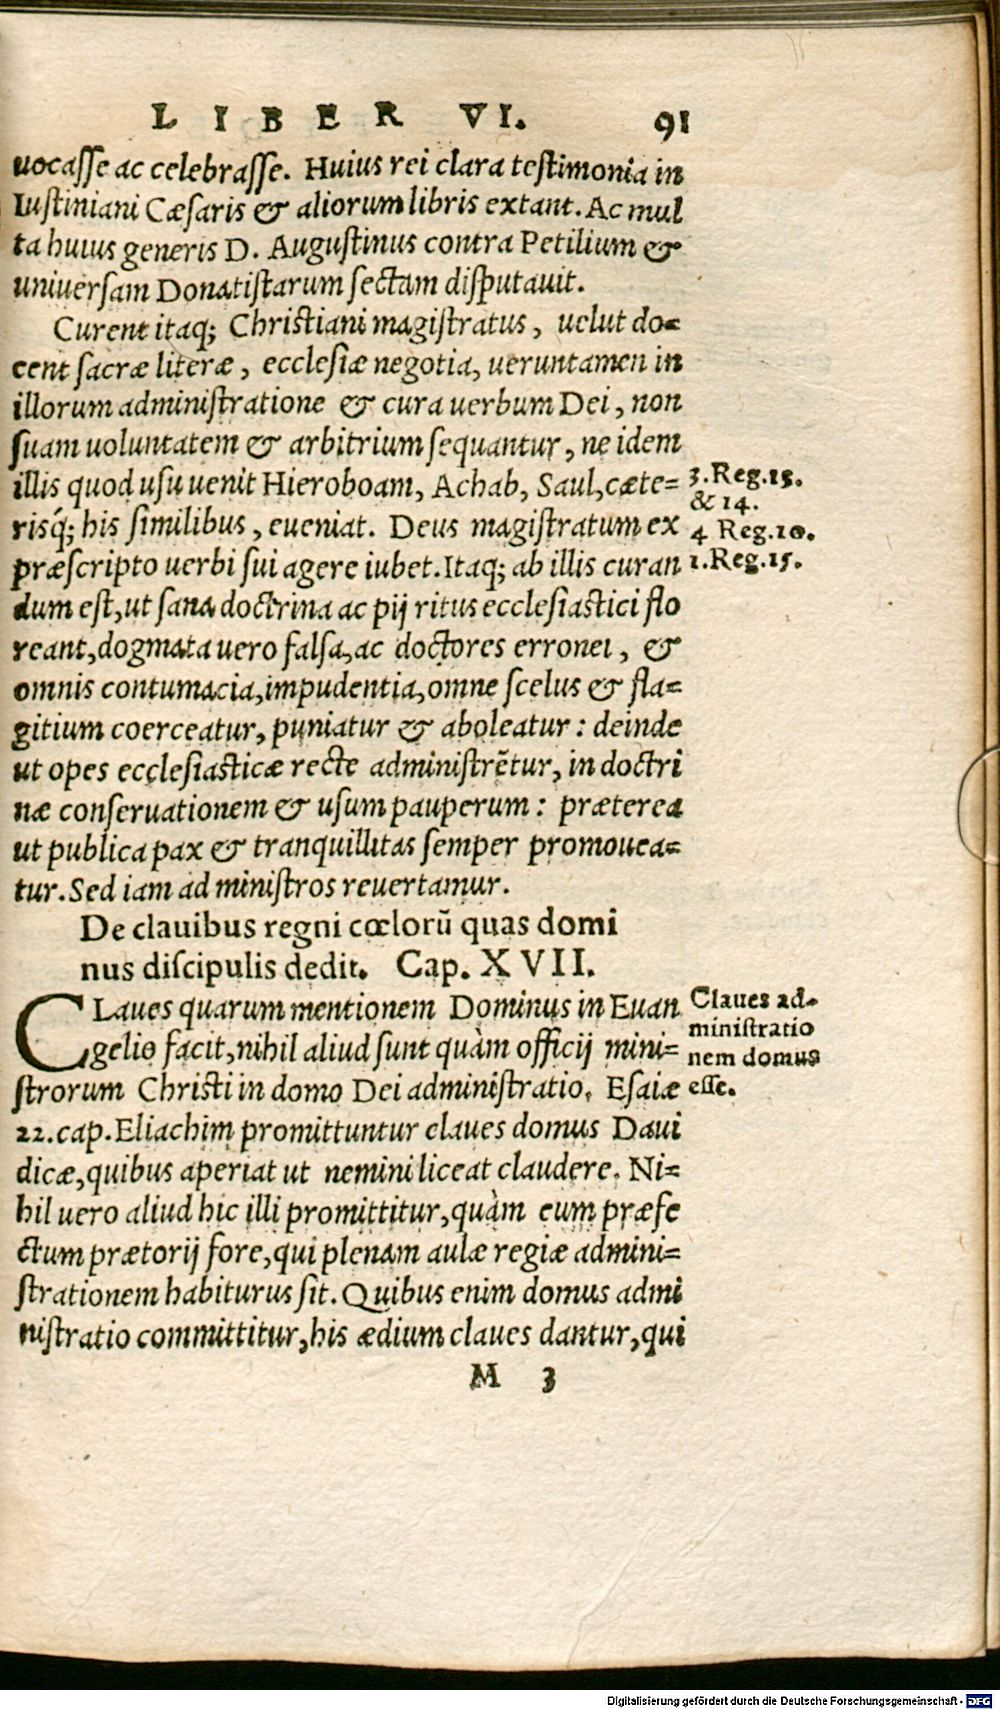 LIBER VI. 91
uocasse ac celebrasse. Huius rei clara testimonia in
Iustiniani Cæsaris & aliorum libris extant. Ac mul
ta huius generis D. Augustinus contra Petilium &
uniuersam Donatistarum sectam disputauit.
Curent itaq; Christiani magistratus, uelut do=
cent sacræ literæ, ecclesiæ negotia, ueruntamen in
illorum administratione & cura uerbum Dei, non
suam uoluntatem & arbitrium sequantur, ne idem
illis quod usu uenit Hieroboam, Achab, Saul, cæte=
risq́; his similibus, eueniat. Deus magistratum ex
præscripto uerbi sui agere iubet. Itaq; ab illis curan
dum est, ut sana doctrina ac pij ritus ecclesiastici flo
reant, dogmata uero falsa, ac doctores erronei, &
omnis contumacia, impudentia, omne scelus & fla=
gitium coerceatur, puniatur & aboleatur: deinde
ut opes ecclesiasticæ recte administrẽtur, in doctri
næ conseruationem & usum pauperum: præterea
ut publica pax & tranquillitas semper promouea=
tur. Sed iam ad ministros reuertamur.
3. Reg. 13.
& 14.
4 Reg. 10.
1. Reg. 15.
De clauibus regni cœlorũ quas domi
nus discipulis dedit. Cap. XVII.
CLaues quarum mentionem Dominus in Euan
gelio facit, nihil aliud sunt quàm officij mini=
strorum Christi in domo Dei administratio. Esaiæ
22. cap. Eliachim promittuntur claues domus Daui
dicæ, quibus aperiat ut nemini liceat claudere. Ni=
hil uero aliud hic illi promittitur, quàm eum præfe
ctum prætorij fore, qui plenam aulæ regiæ admini=
strationem habiturus sit. Quibus enim domus admi
nistratio committitur, his ædium claues dantur, qui
Claues ad=
ministratio
nem domus
esse.
M 3
Digitalisierung gefördert durch die Deutsche Forschungsgemeinschaft - DFG